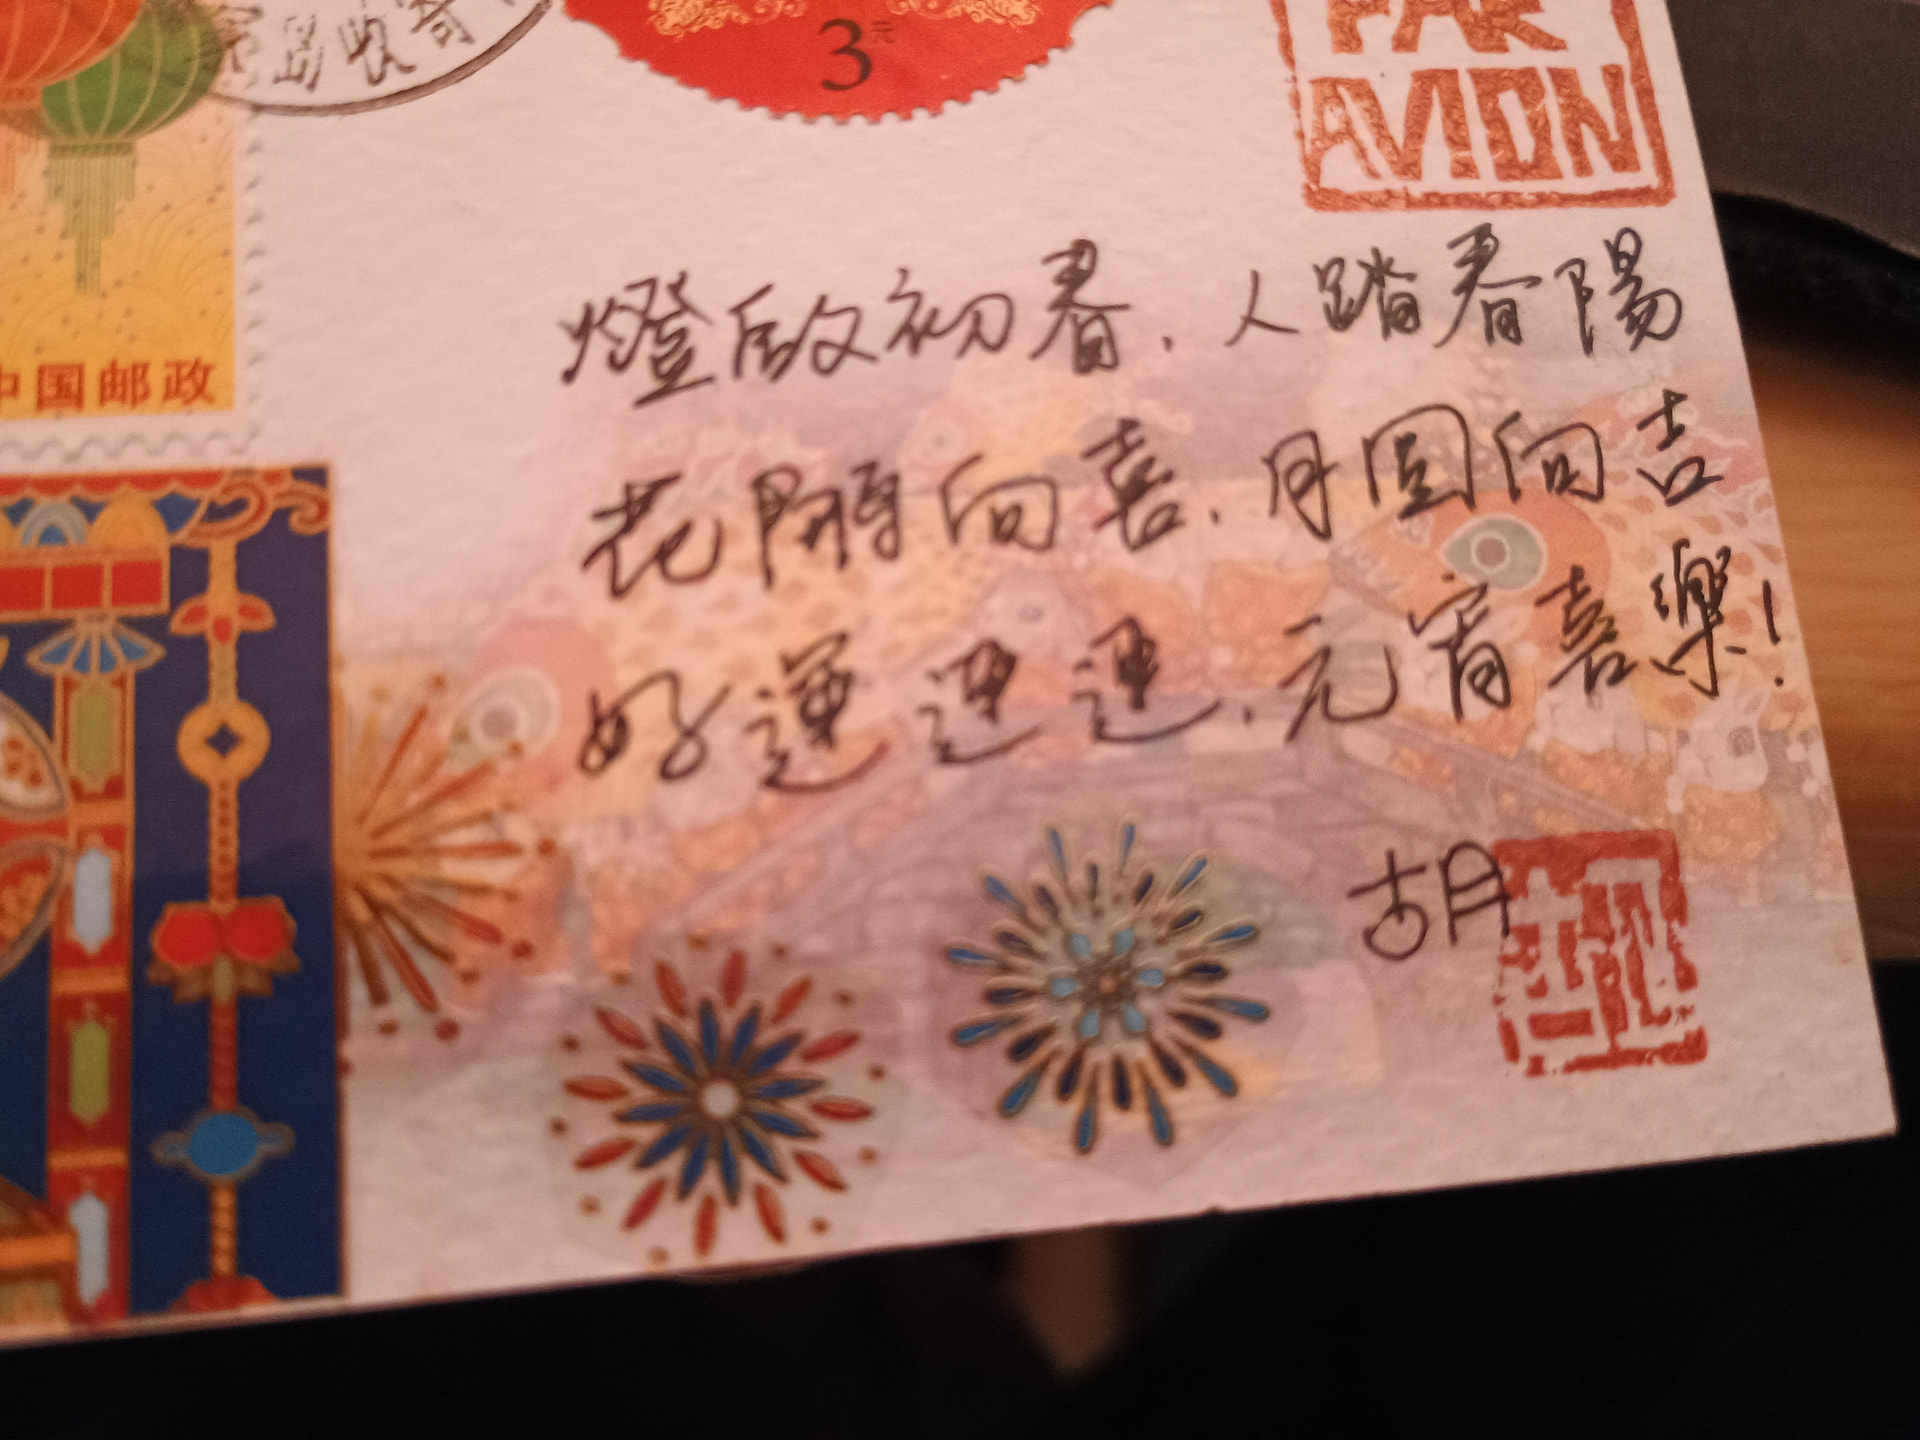 島收寄
3元
PAR
AVION
中国邮政
燈啟初春，人踏春陽
花開向喜，月圓向吉
好運連連，元宵喜樂！
胡